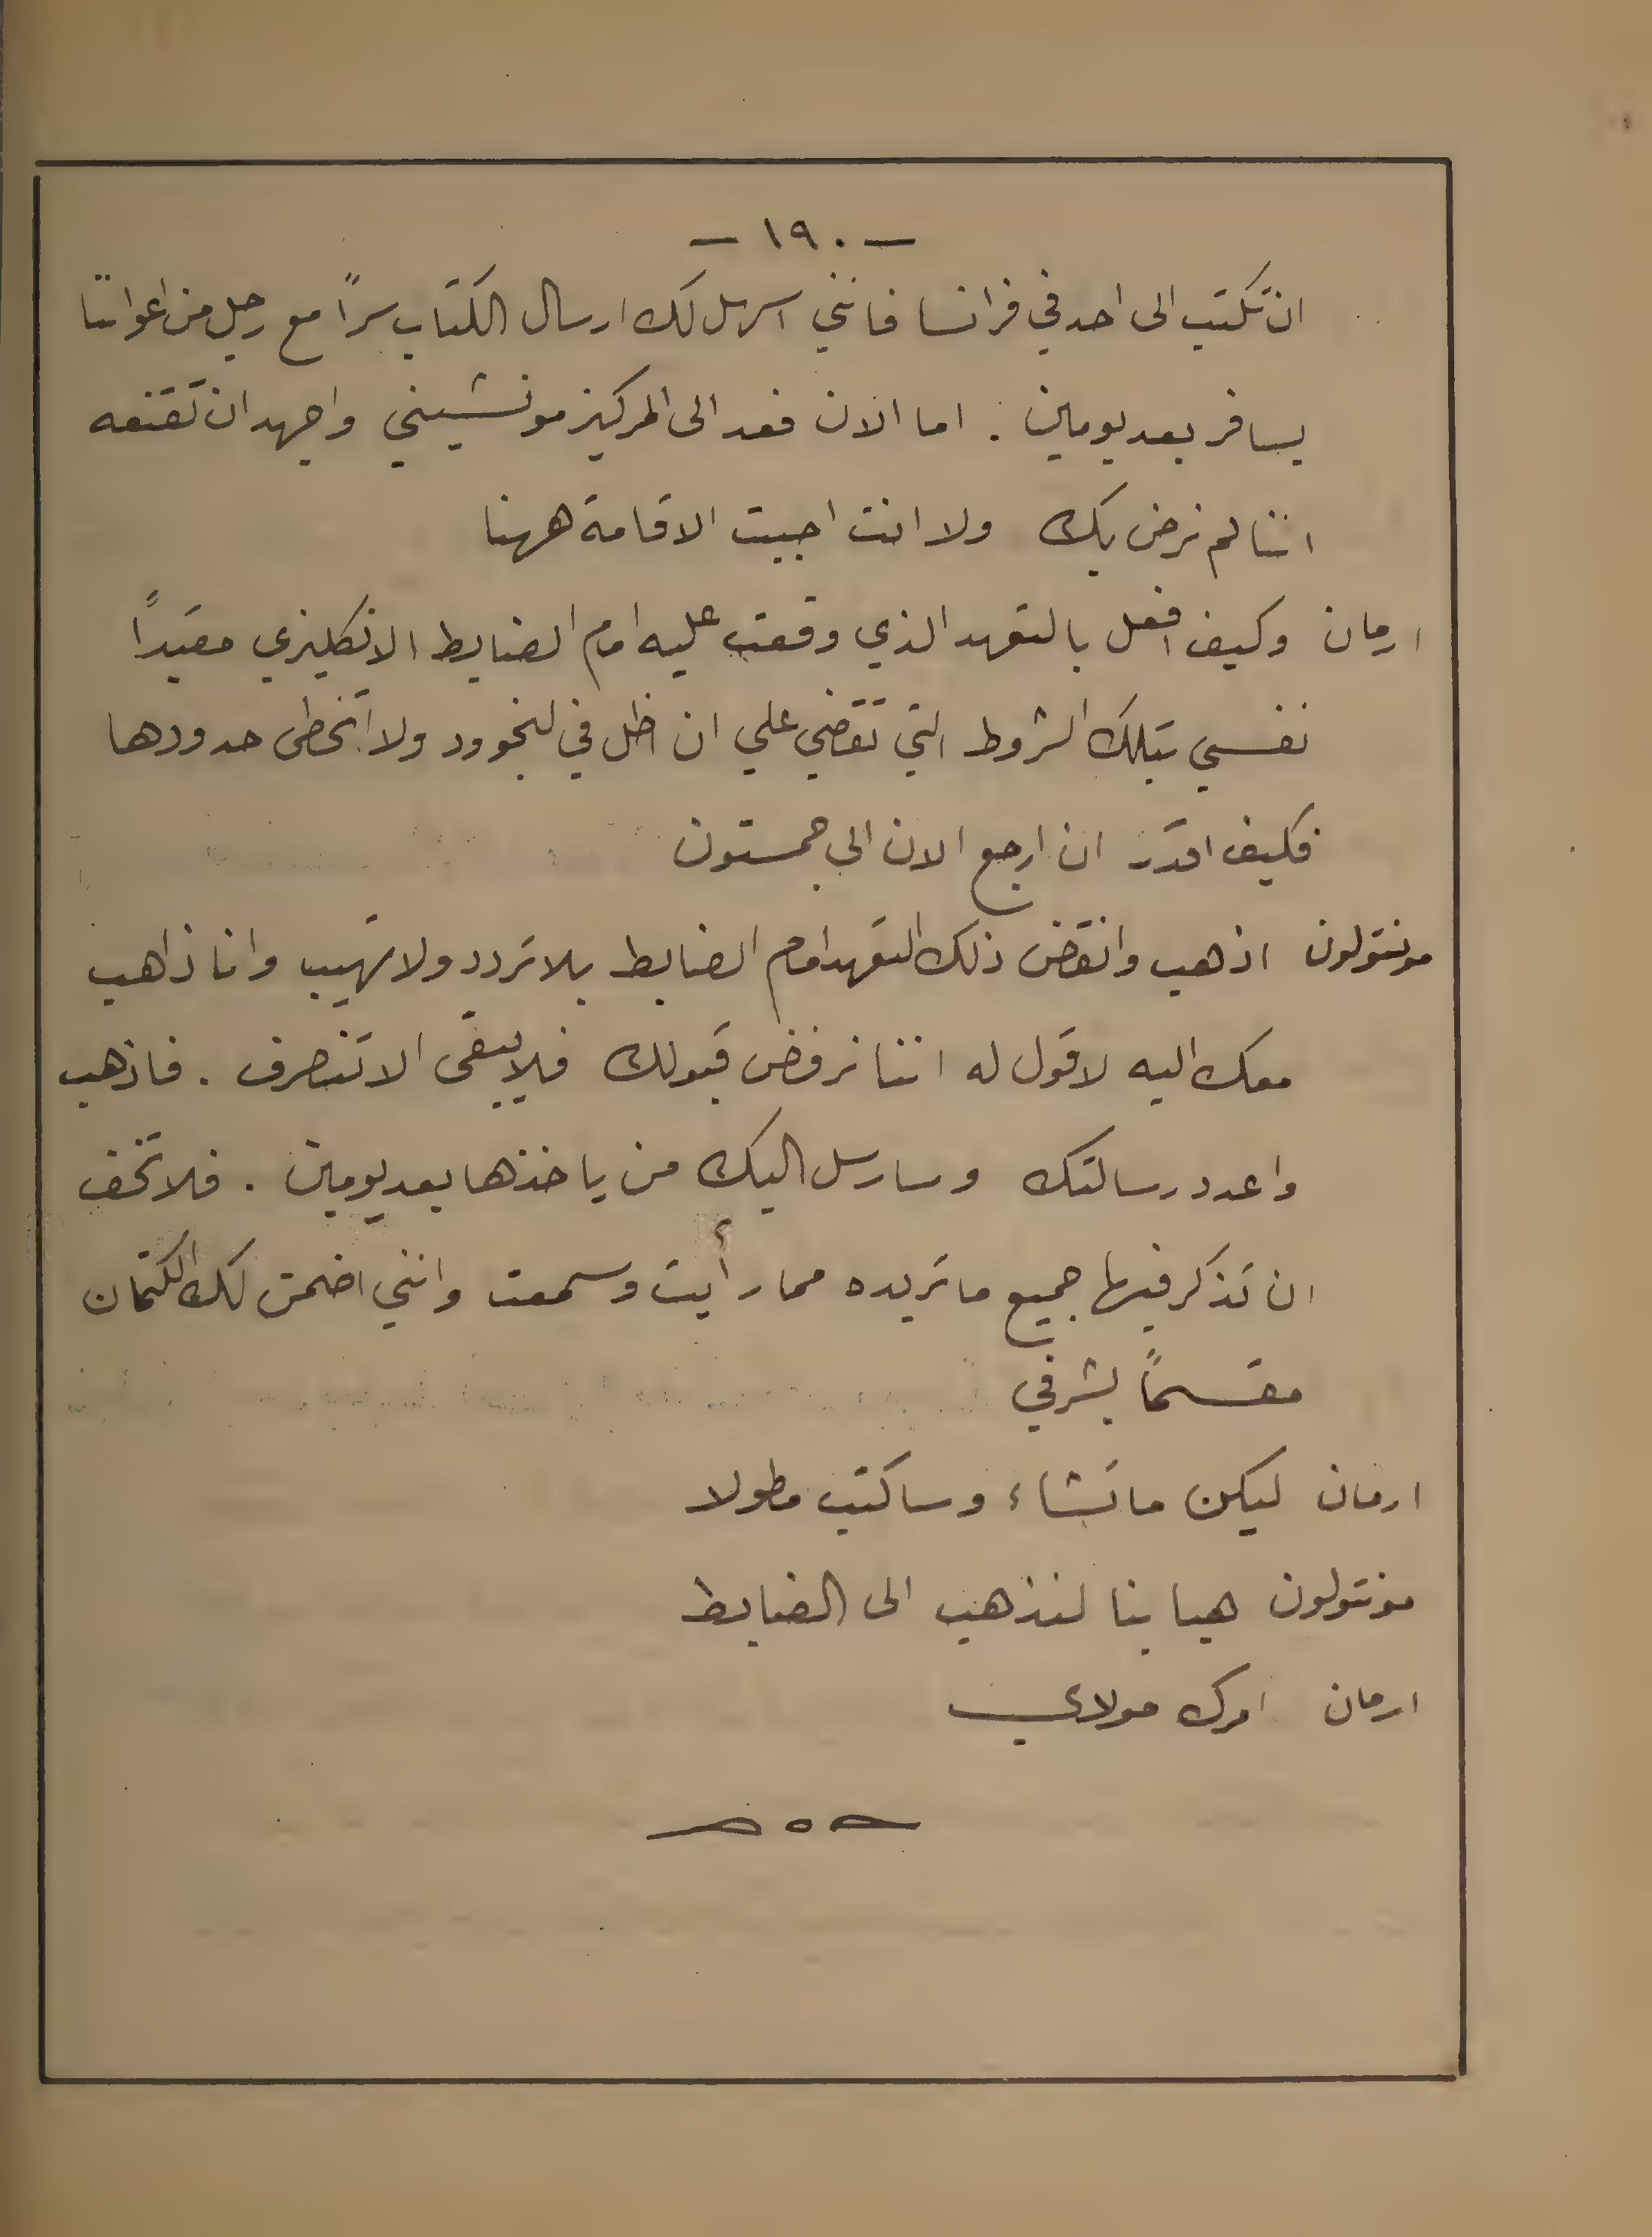 — ١٩٠ —
ان تكتب الى احد في فرانسا فانني اسهل لك ارسال الكتاب سراً مع رجل من اعواننا
يسافر بعد يومين . اما الان فعد الى المركيز مونشيني واجهد ان تقنعه
اننا لم نرض بك ولا انت احببت الاقامة ههنا
ارمان وكيف افعل بالتعهد الذي وقعت عليه امام الضابط الانكليزي مقيداً
نفسي بتلك الشروط التي تقضي علي ان اظل في لنجوود ولا اتخطى حدودها
فكيف اقدر ان ارجع الان الى جمستون
مونتولون اذهب وانقض ذلك التعهد امام الضابط بلا تردد ولا تهيب وانا ذاهب
معك اليه لاقول له اننا نرفض قبولك فلا يبقى الا تنصرف . فاذهب
واعدد رسالتك وسارسل اليك من ياخذها بعد يومين . فلا تخف
ان تذكر فيها جميع ما تريده مما رأيت وسمعت وانني اضمن لك الكتمان
مقسماً بشرفي
ارمان ليكن ما تشاء وساكتب مطولا
مونتولون هيا بنا لنذهب الى الضابط
ارمان امرك مولاي